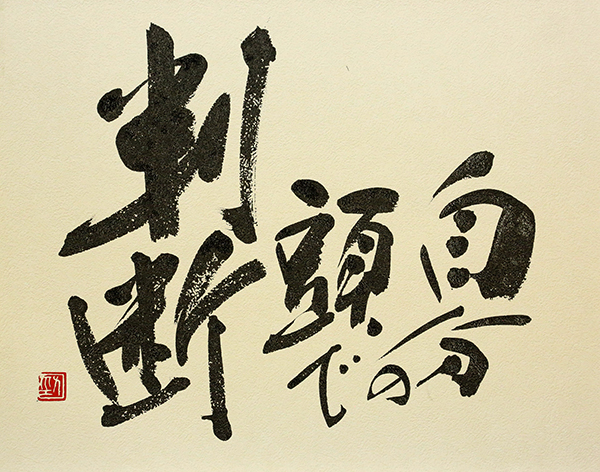 自分の
頭で
判断